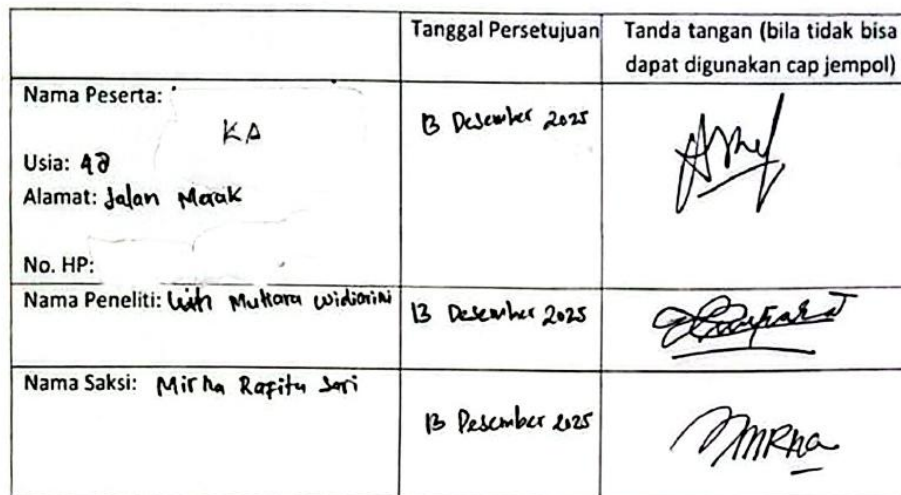 Tanggal Persetujuan
Tanda tangan (bila tidak bisa
dapat digunakan cap jempol)
Nama Peserta:
KA
Usia: 48
Alamat: Jalan Merak
No. HP:
13 Desember 2025
Nama Peneliti: Mutiara Widiarini
13 Desember 2025
Nama Saksi: Mirna Sari
13 Desember 2025
MRna